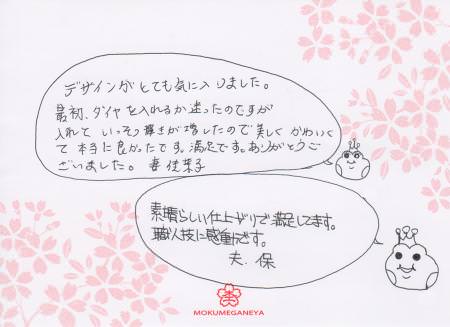 デザインがとても気に入りました。
最初、ダイヤを入れるか迷ったのですが
入れて いっそう輝きが増したので美しく かわいく
て 本当に良かったです。満足です。ありがとうご
ざいました。 妻 佳菜子
素晴らしい仕上がりで満足してます。
職人技に感動です。
夫、保
MOKUMEGANEYA